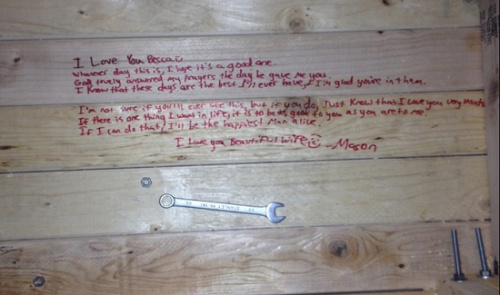 I Love You Becca
Whatever day this is, I hope it's a good one.
God truely answered my prayers the day he gave me you.
I know that these days are the best I'll ever have, & I'm glad you're in them.
I'm not sure if you'll ever see this, but if you do, Just Know that I Love you very much
If there is one thing I want in life, it is to be as good to you as you are to me.
If I can do that, I'll be the happiest Man alive.
I Love you Beautiful Wife
-Mason